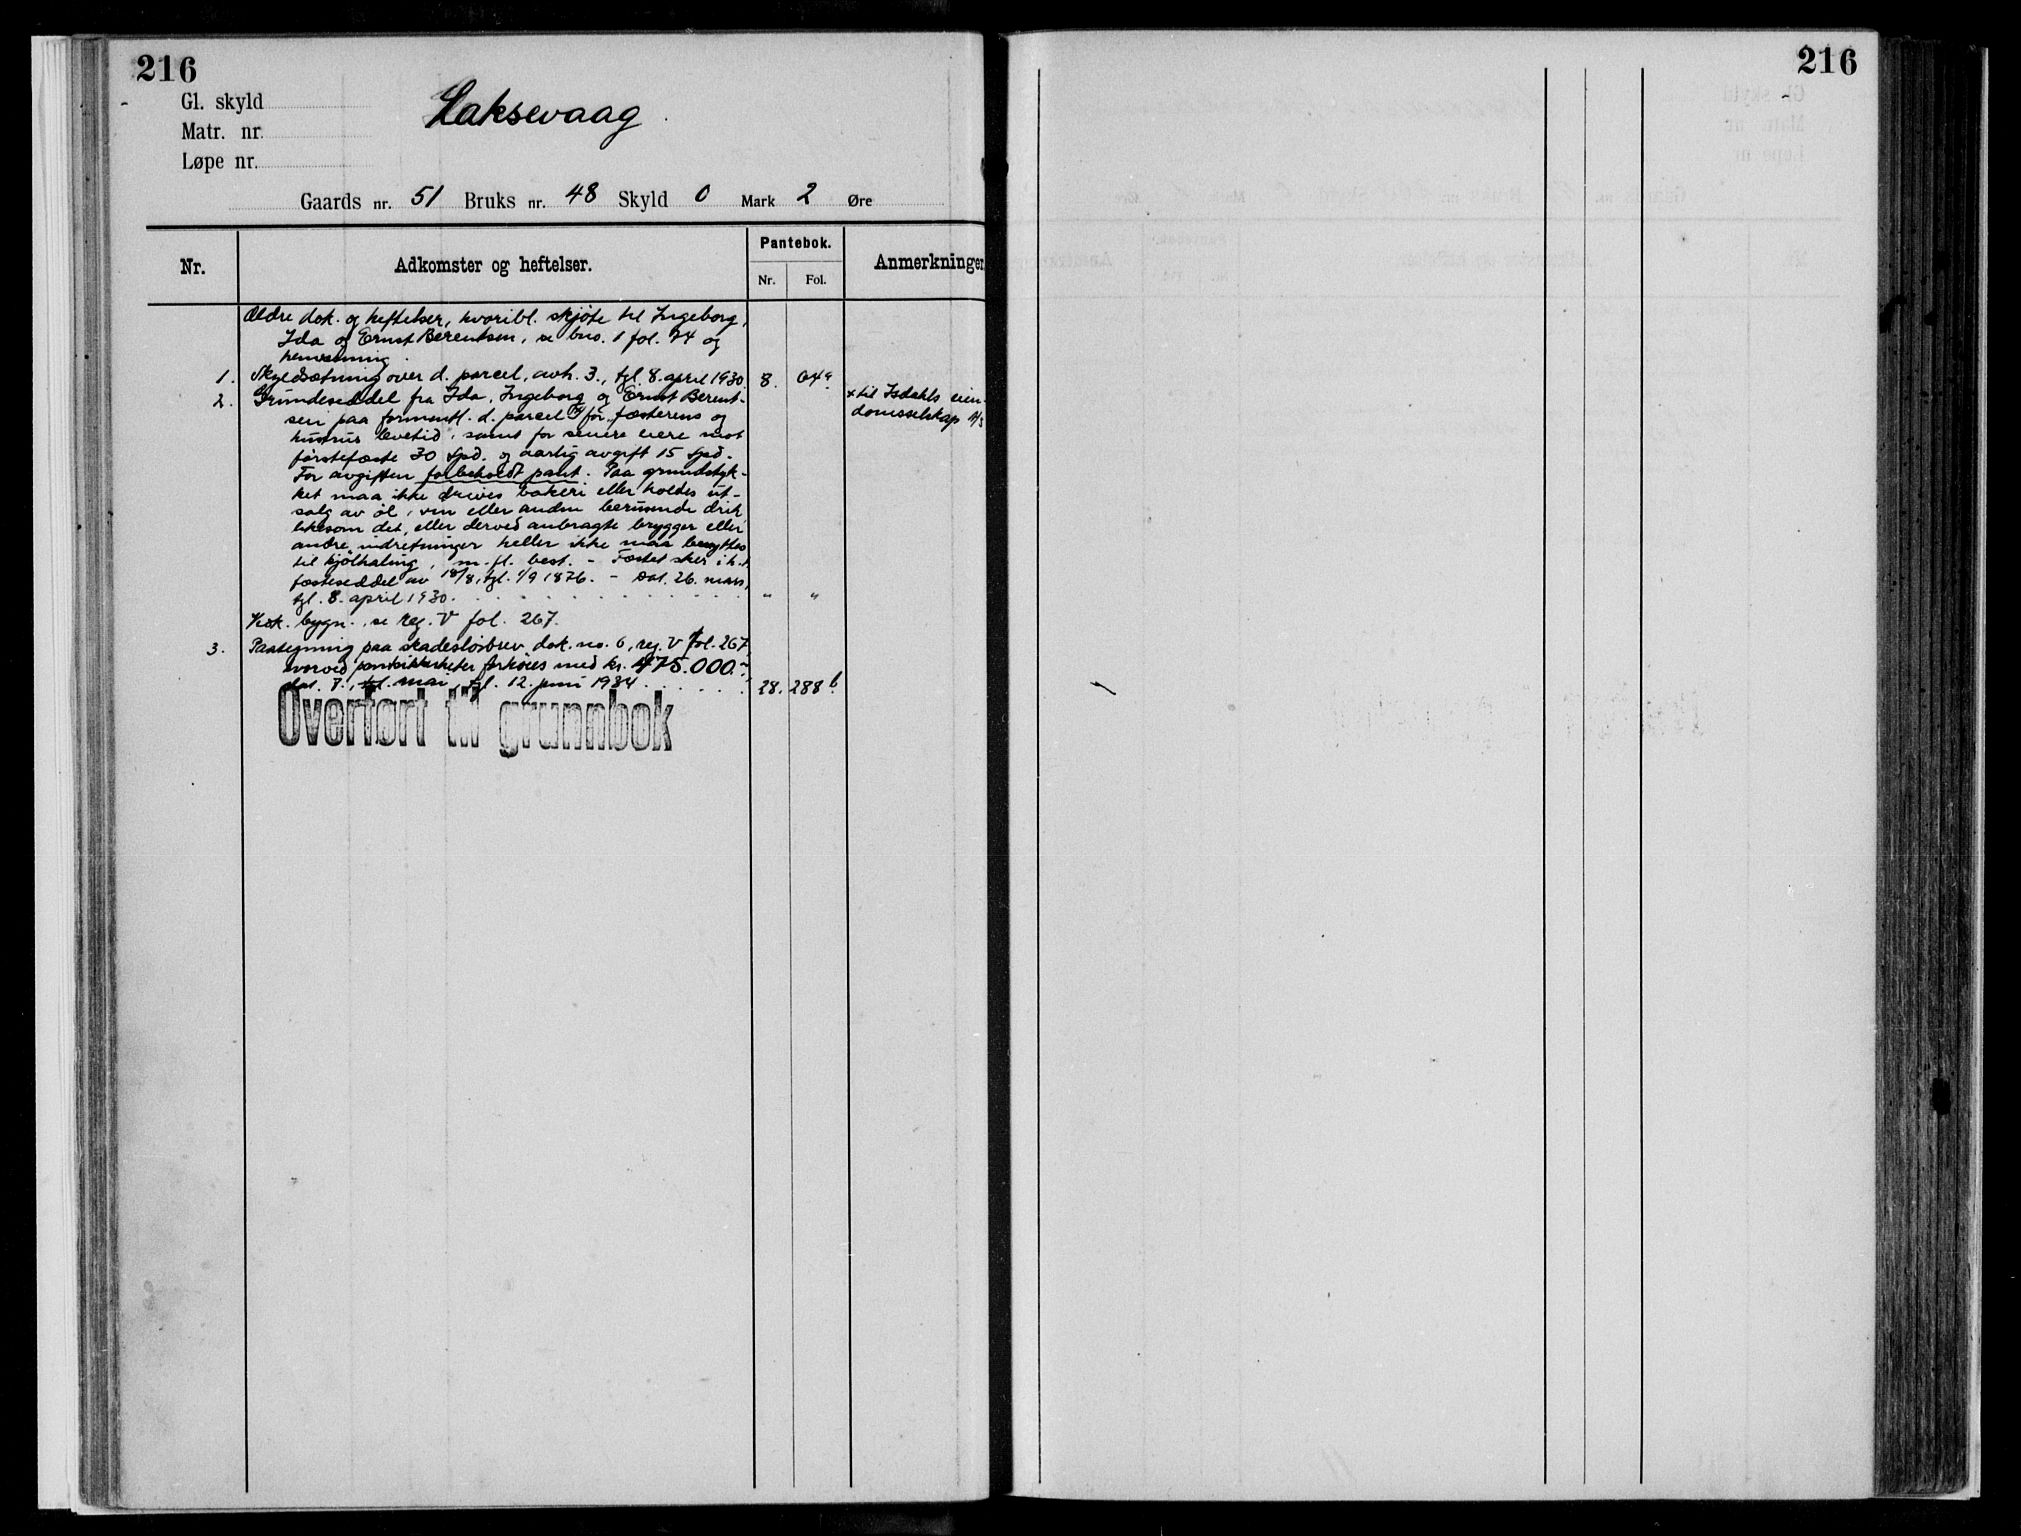 216
Gl. skyld
Matr. nr.
Løpe nr.
Laksevaag
Gaards nr. 51 Bruks nr. 48 Skyld 0 Mark 2 Øre
Nr.
Adkomster og heftelser.
Pantebok.
Nr. Fol.
Anmerkninger
Ældre dok. og heftelser, hvoribl. skjøte til Ingeborg,
Ida og Ernst Berentsen, se bno. 1 fol. 94 og
henvisning.
1. Skyldsætning over d. parcel, avh. 3., tgl. 8. april 1930. 8.
2. Grundeseddel fra Ida, Ingeborg og Ernst Berent-
sen paa formentl. d. parcel x) for fæsterens og
hustrus levetid, samt for senere eiere mot
førstefæste 30 Spd. og aarlig avgift 15 Spd.
For avgiften forbeholdt pant. Paa grundstyk-
ket maa ikke drives bakeri eller holdes ut-
salg av øl, vin eller anden berusende drik
likesom det, eller derved anbragte brygger eller
andre indretninger heller ikke maa benyttes
til kjølhaling, m. fl. best. - Fæstet sker i h.t.
fæsteseddel av 18/8, tgl. 1/9 1876. - Dat. 26. mars,
tgl. 8. april 1930. . . . . . . . . . . . " "
x til Isdahls eien-
domsselskap A/S
bygn., se reg. V fol. 267.
3. Paategning paa skadesløsbrev, dok. no. 6, reg. V fol. 267,
hvorved pantsikkerheten forhøies med kr. 475.000.-
dat. 7. mai, tgl. 12. juni 1934 . . . . . . 28. 288 b.
Overført til grunnbok
216